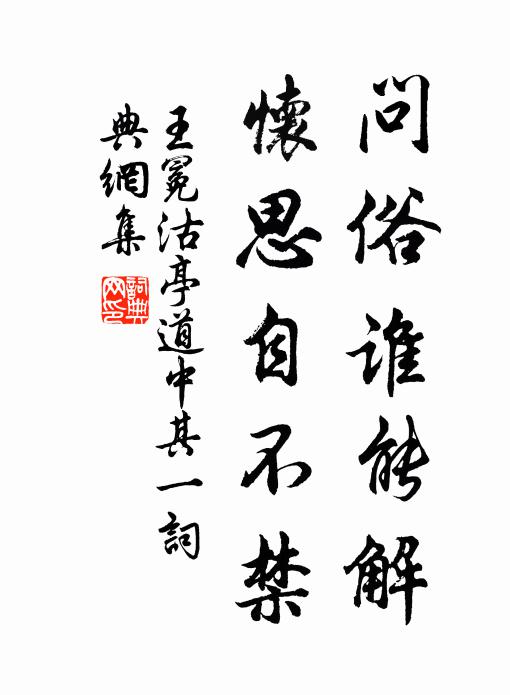 問俗誰能解
懷思自不禁
王冕沽亭道中其一詞
典網集
詞典網印